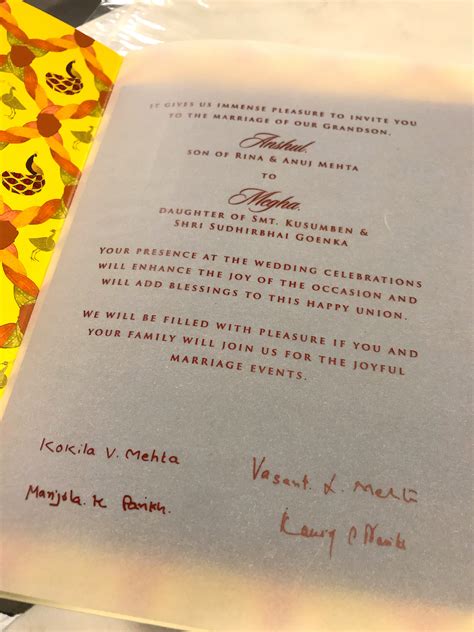 IT GIVES US IMMENSE PLEASURE TO INVITE YOU
TO THE MARRIAGE OF OUR GRANDSON,
Anshul,
SON OF RINA & ANUJ MEHTA
TO
Megha,
DAUGHTER OF SMT. KUSUMBEN &
SHRI SUDHIRBHAI GOENKA
YOUR PRESENCE AT THE WEDDING CELEBRATIONS
WILL ENHANCE THE JOY OF THE OCCASION AND
WILL ADD BLESSINGS TO THIS HAPPY UNION.
WE WILL BE FILLED WITH PLEASURE IF YOU AND
YOUR FAMILY WILL JOIN US FOR THE JOYFUL
MARRIAGE EVENTS.
Kokila V. Mehta
Vasant. L. Mehta
Manjola. K Parikh.